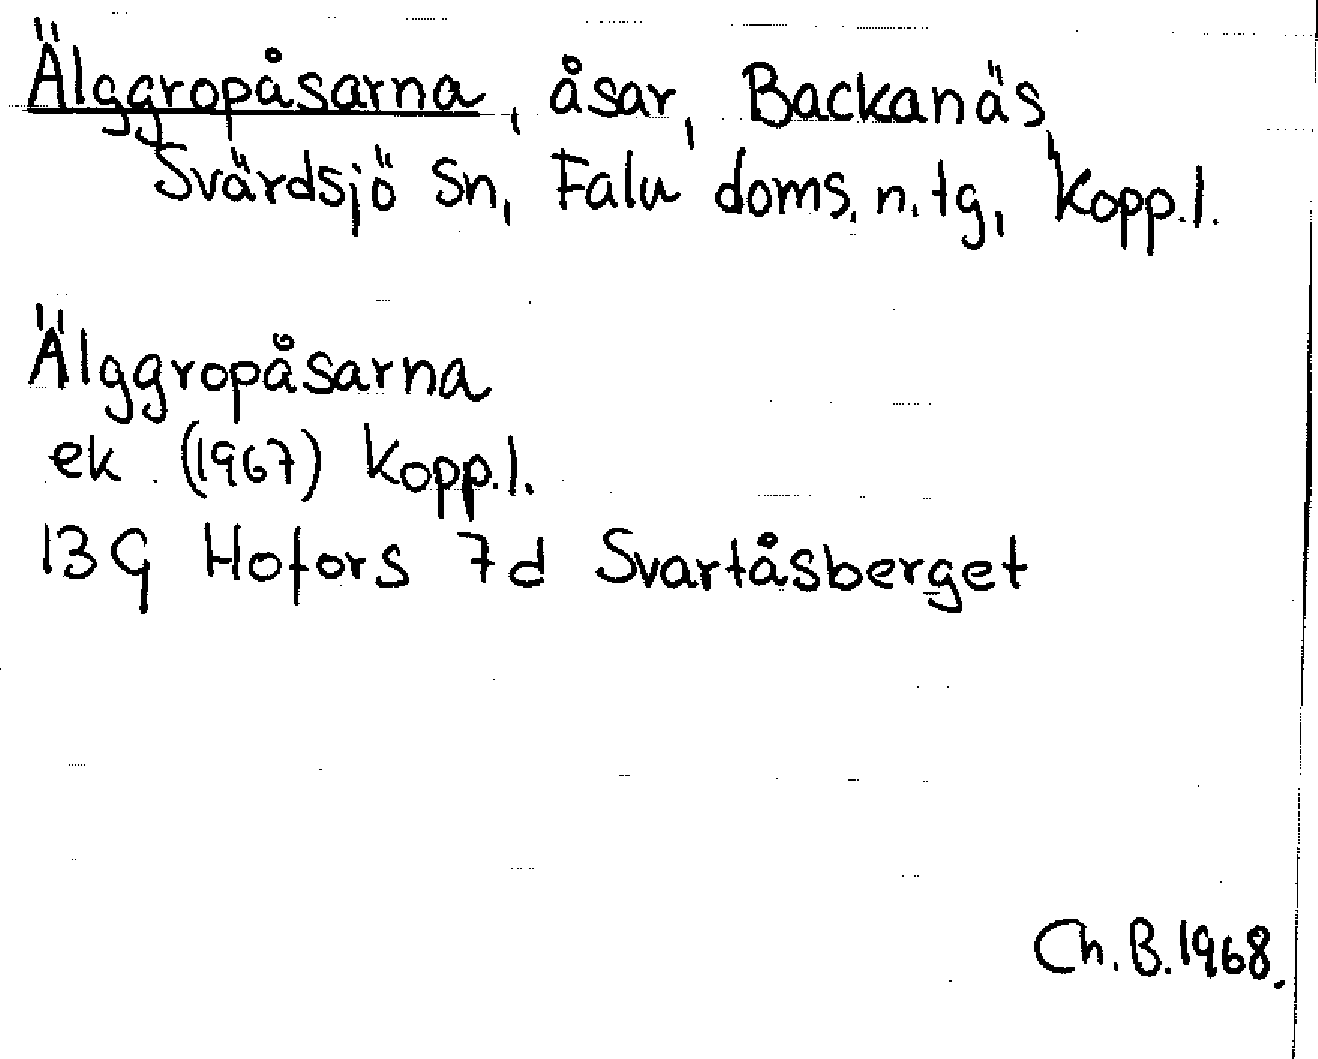 Älggropåsarna, åsar, Backanäs,
Svärdsjö sn, Falu doms. n. tg, Kopp.l.
Älggropåsarna
ek (1967) Kopp.l.
13G Hofors 7d Svartåsberget
Ch.B.1968.